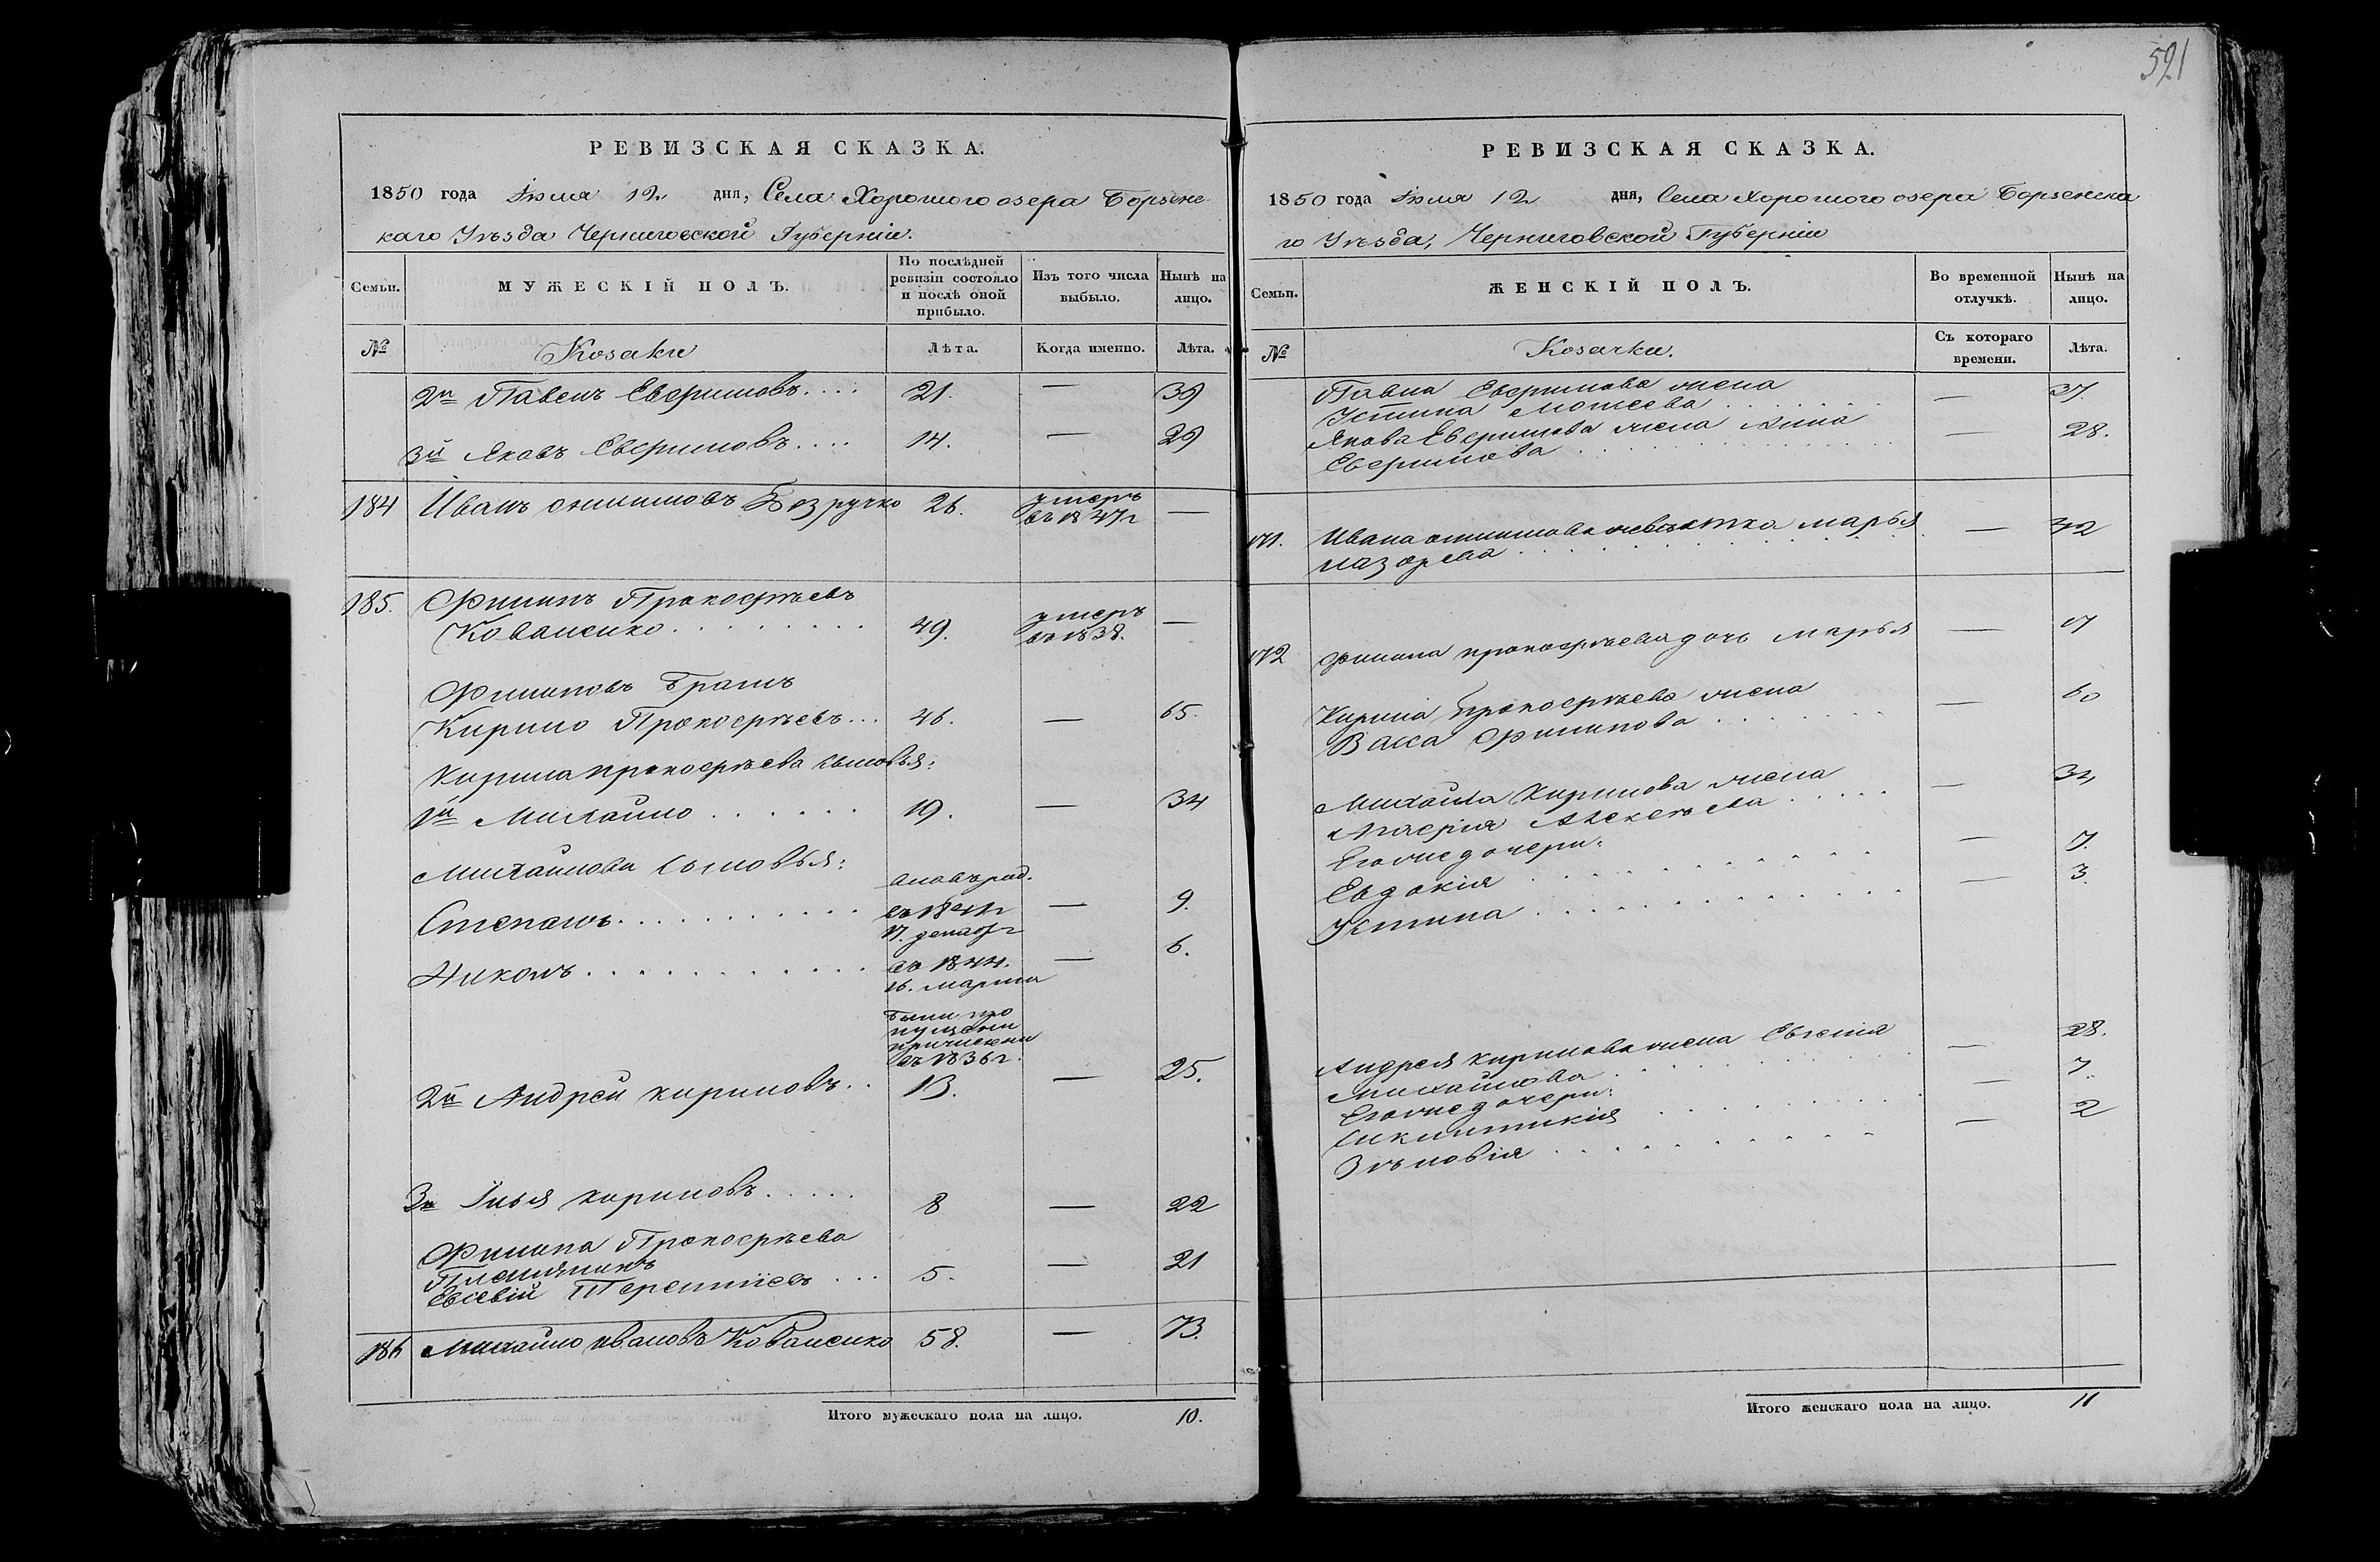 521
РЕВИЗСКАЯ СКАЗКА.
1850 года Іюля 12 дня, Села Хорошого озера Борзенс
каго Уѣзда Черниговской Губерніи.
Семьи. МУЖЕСКІЙ ПОЛЪ. По послѣдней ревизіи состояло и послѣ оной прибыло. Изъ того числа выбыло. Нынѣ на лицо.
№ Козаки Лѣта. Когда именно. Лѣта.
2й Павелъ Евфимовъ.... 21. — 39
3й Яковъ Евфимовъ.... 14. — 29
184 Иванъ Безручко 26. умеръ въ 1847г —
185. Филипъ Прокофѣевъ
Коваленко........ 49. умеръ въ 1838. —
Филиповъ Братъ
Кирило Прокофѣевъ... 46. — 65.
Кирила прокофѣева сыновья:
1й Михайло...... 19. — 34
Михайлова Сыновья:
Степанъ........... вновь род. въ 1841г 17. декабр — 9.
Никонъ............ въ 1844. 16. марта — 6.
были про
пущены
причислены
въ 1836г.
2й Андрей кириловъ.. 13. — 25.
3й Илья кириловъ..... 8 — 22
Филипа Прокофѣева
Племянникъ
Евсевій Терентіевъ... 5. — 21
186 Михайло ивановъ Коваленко 58. — 73.
Итого мужескаго пола на лицо. 10.
РЕВИЗСКАЯ СКАЗКА.
1850 года Іюля 12 дня, Села Хорошого озера Борзенска
го Уѣзда, Черниговской Губерніи
Семьи. ЖЕНСКІЙ ПОЛЪ. Во временной отлучкѣ. Нынѣ на лицо.
№ Козачки. Съ котораго времени. Лѣта.
Павла Евфимова жена
Устина Моисеева....... — 37.
Якова Евфимова жена Анна
Евфимова........... — 28.
171. Ивана невѣстка марья
назарева........... — 42
172 филипа прокофѣева дочь марья — 17
Кирила Прокофѣева жена
Васса Филипова....... — 60
Михайла Кирилова жена
Алексѣева..... — 34
Егоже дочери:
Евдокія.......... — 7.
Устина............ — 3.
Андрея кирилова жена Евгенія
михайлова......... — 28.
Егоже дочери:
Синклитикія........ — 7.
Зѣновія......... — 2
Итого женскаго пола на лицо. 11